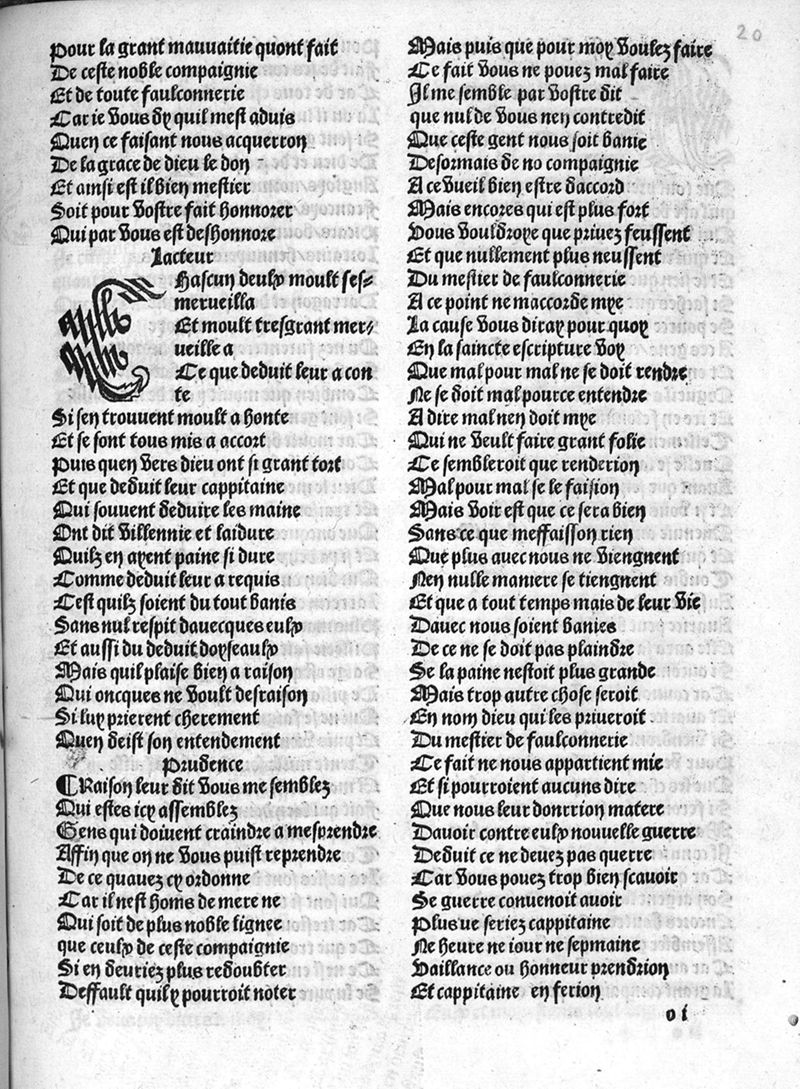 Pour la grant mauvaitie quont fait
De ceste noble compaignie
Et de toute faulconnerie
Car ie vous dy quil mest aduis
Quen ce faisant nous acquerron
De la grace de dieu le don
Et ainsi est il bien mestier
Soit pour vostre fait honnorer
Qui par vous est deshonnore
Lacteur
Chascun deulx moult ses-
merveilla
Et moult tresgrant mer-
ueille a
Ce que deduit leur a con
te
Si sen trouvent moult a honte
Et se sont tous mis a accort
Puis quen vers dieu ont si grant tort
Et que deduit leur cappitaine
Qui souvent deduire les maine
Ont dit villennie et laidure
Quilz en ayent paine si dure
Comme deduit leur a requis
Cest quilz soient du tout banis
Sans nul respit davecques eulx
Et aussi du deduit doyseaulx
Mais quil plaise bien a raison
Qui oncques ne voult desraison
Si luy prierent cherement
Quen deist son entendement
Prudence
¶ Raison leur dit vous me semblez
Qui estes icy assemblez
Gens qui doivent craindre a mesprendre
Affin que on ne vous puist reprendre
De ce quavez cy ordonne
Car il nest homs de mere ne
Qui soit de plus noble lignee
que ceulx de ceste compaignie
Si en devriez plus redoubter
Deffault quily pourroit noter
Mais puis que pour moy voulez faire
Ce fait vous ne povez mal faire
Il me semble par vostre dit
que nul de vous nen contredit
Que ceste gent nous soit banie
Desormais de no compaignie
A ce vueil bien estre daccord
Mais encores qui est plus fort
Vous vouldroye que privez feussent
Et que nullement plus neussent
Du mestier de faulconnerie
A ce point ne maccorde mye
La cause vous diray pour quoy
En la saincte escripture voy
Que mal pour mal ne se doit rendre
Ne se doit mal pource entendre
A dire mal nen doit mye
Qui ne veult faire grant folie
Ce sembleroit que renderion
Mal pour mal se le faision
Mais voir est que ce sera bien
Sans ce que meffaisson rien
Que plus avec nous ne viengnent
Nen nulle maniere se tiengnent
Et que a tout temps mais de leur vie
Davec nous soient banies
De ce ne se doit pas plaindre
Se la paine nestoit plus grande
Mais trop autre chose seroit
En nom dieu qui les priveroit
Du mestier de faulconnerie
Ce fait ne nous appartient mie
Et si pourroient aucuns dire
Que nous leur donrrion matere
Davoir contre eulx nouvelle guerre
Deduit ce ne devez pas querre
Car vous povez trop bien scavoir
Se guerre convenoit avoir
Plus ve seriez cappitaine
Ne heure ne iour ne sepmaine
Vaillance ou honneur prendrion
Et cappitaine en ferion
o i
20